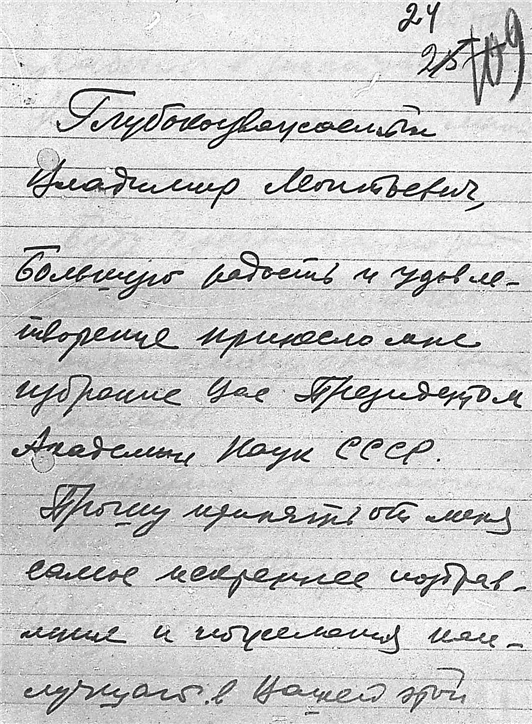 24
25 109
Глубокоуважаемый
Владимир Леонтьевич,
Большую радость и удовле-
творение принесло мне
избрание Вас Президентом
Академии Наук СССР.
Прошу принять от меня
самое искреннее поздрав-
ление и пожелания наи-
лучшего в Вашей этой